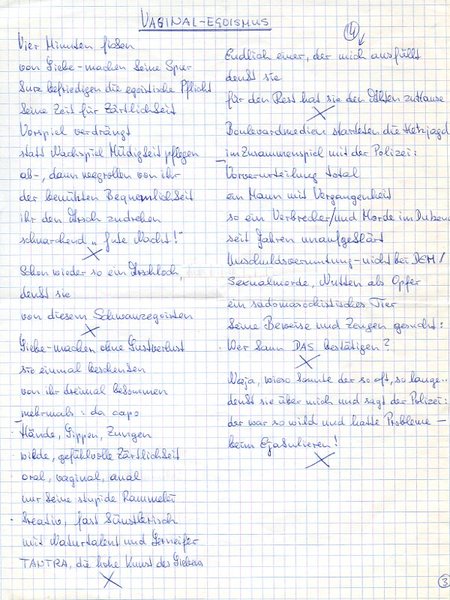 VAGINAL-EGOISMUS
Vier Minuten
von Liebe-machen keine Spur
Pure befriedigen die egoistische Pflicht
keine Zeit für Zärtlichkeit
Vorspiel verdrängt
statt Nachspiel Müdigkeit pflegen
ab-, dann wegrollen von ihr
der benützten Bequemlichkeit
ihr den Arsch zudrehen
schnarchend „Gute Nacht!"
X
Schon wieder so ein Arschloch,
denkt sie
von diesem Schwanzegoisten
X
Liebe-machen ohne Lustverlust
sie einmal beschenken
von ihr dreimal bekommen
mehrmals: da capo
Hände, Lippen, Zungen
wilde, gefühlvolle Zärtlichkeit
oral, vaginal, anal
nur keine stupide Rammelei
kreativ, fast künstlerisch
mit Naturtalent und Lerneifer
TANTRA, die hohe Kunst des Liebens
X
4
Endlich einer, der mich ausfüllt
denkt sie
für den Rest hat sie den zuhause
X
Boulevardmedien starteten die Hetzjagd
im Zusammenspiel mit der Polizei:
Vorverurteilung total
ein Mann mit Vergangenheit
so ein Verbrecher/und Morde im Dutzend
seit Jahren unaufgeklärt
Unschuldsvermutung-nicht bei DEM/
Sexualmorde, Nutten als Opfer
ein sadomasochistisches Tier
keine Beweise und Zeugen gesucht:
Wer kann DAS bestätigen?
X
Naja, wieso konnte der so oft, so lange..
denkt sie über mich und sagt der Polizei:
der war so wild und hatte Probleme –
beim Ejakulieren!
X
3